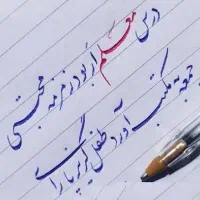 درس معلم ار بود زمزمه محبتی
جمعه به مکتب آورد طفل گریزپای را